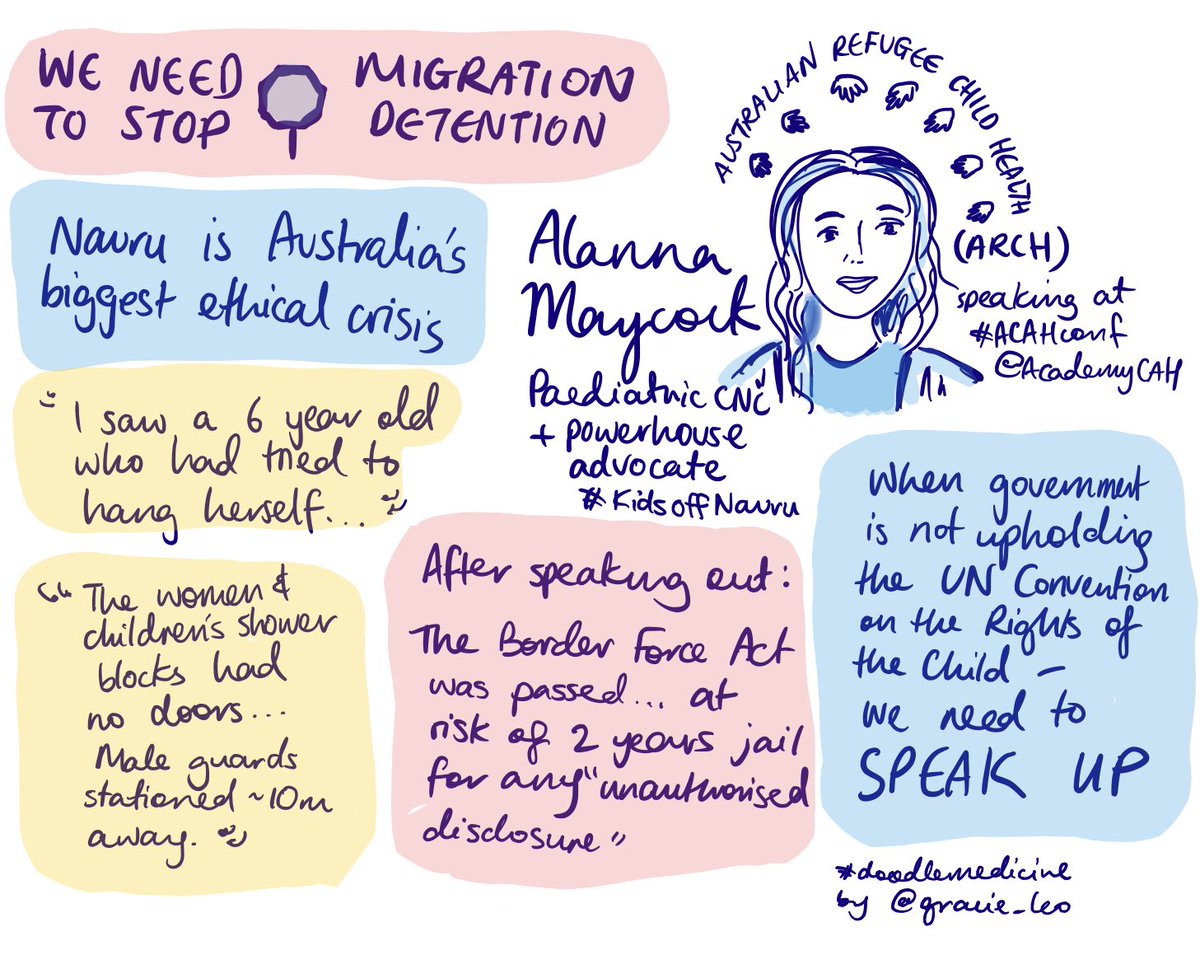 WE NEED
TO STOP
MIGRATION
DETENTION
AUSTRALIAN REFUGEE CHILD HEALTH
(ARCH)
speaking at
#ACAHconf
@AcademyCAH
Nauru is Australia's
biggest ethical crisis
Alanna
Maycock
Paediatric CNC
+ powerhouse
advocate
#KidsoffNauru
"I saw a 6 year old
who had tried to
hang herself..."
"The women &
children's shower
blocks had
no doors...
Male guards
stationed ~10m
away."
After speaking out:
The Border Force Act
was passed... at
risk of 2 years jail
for any "unauthorised
disclosure"
When government
is not upholding
the UN Convention
on the Rights of
the Child –
we need to
SPEAK UP
#doodlemedicine
by @gracie_leo